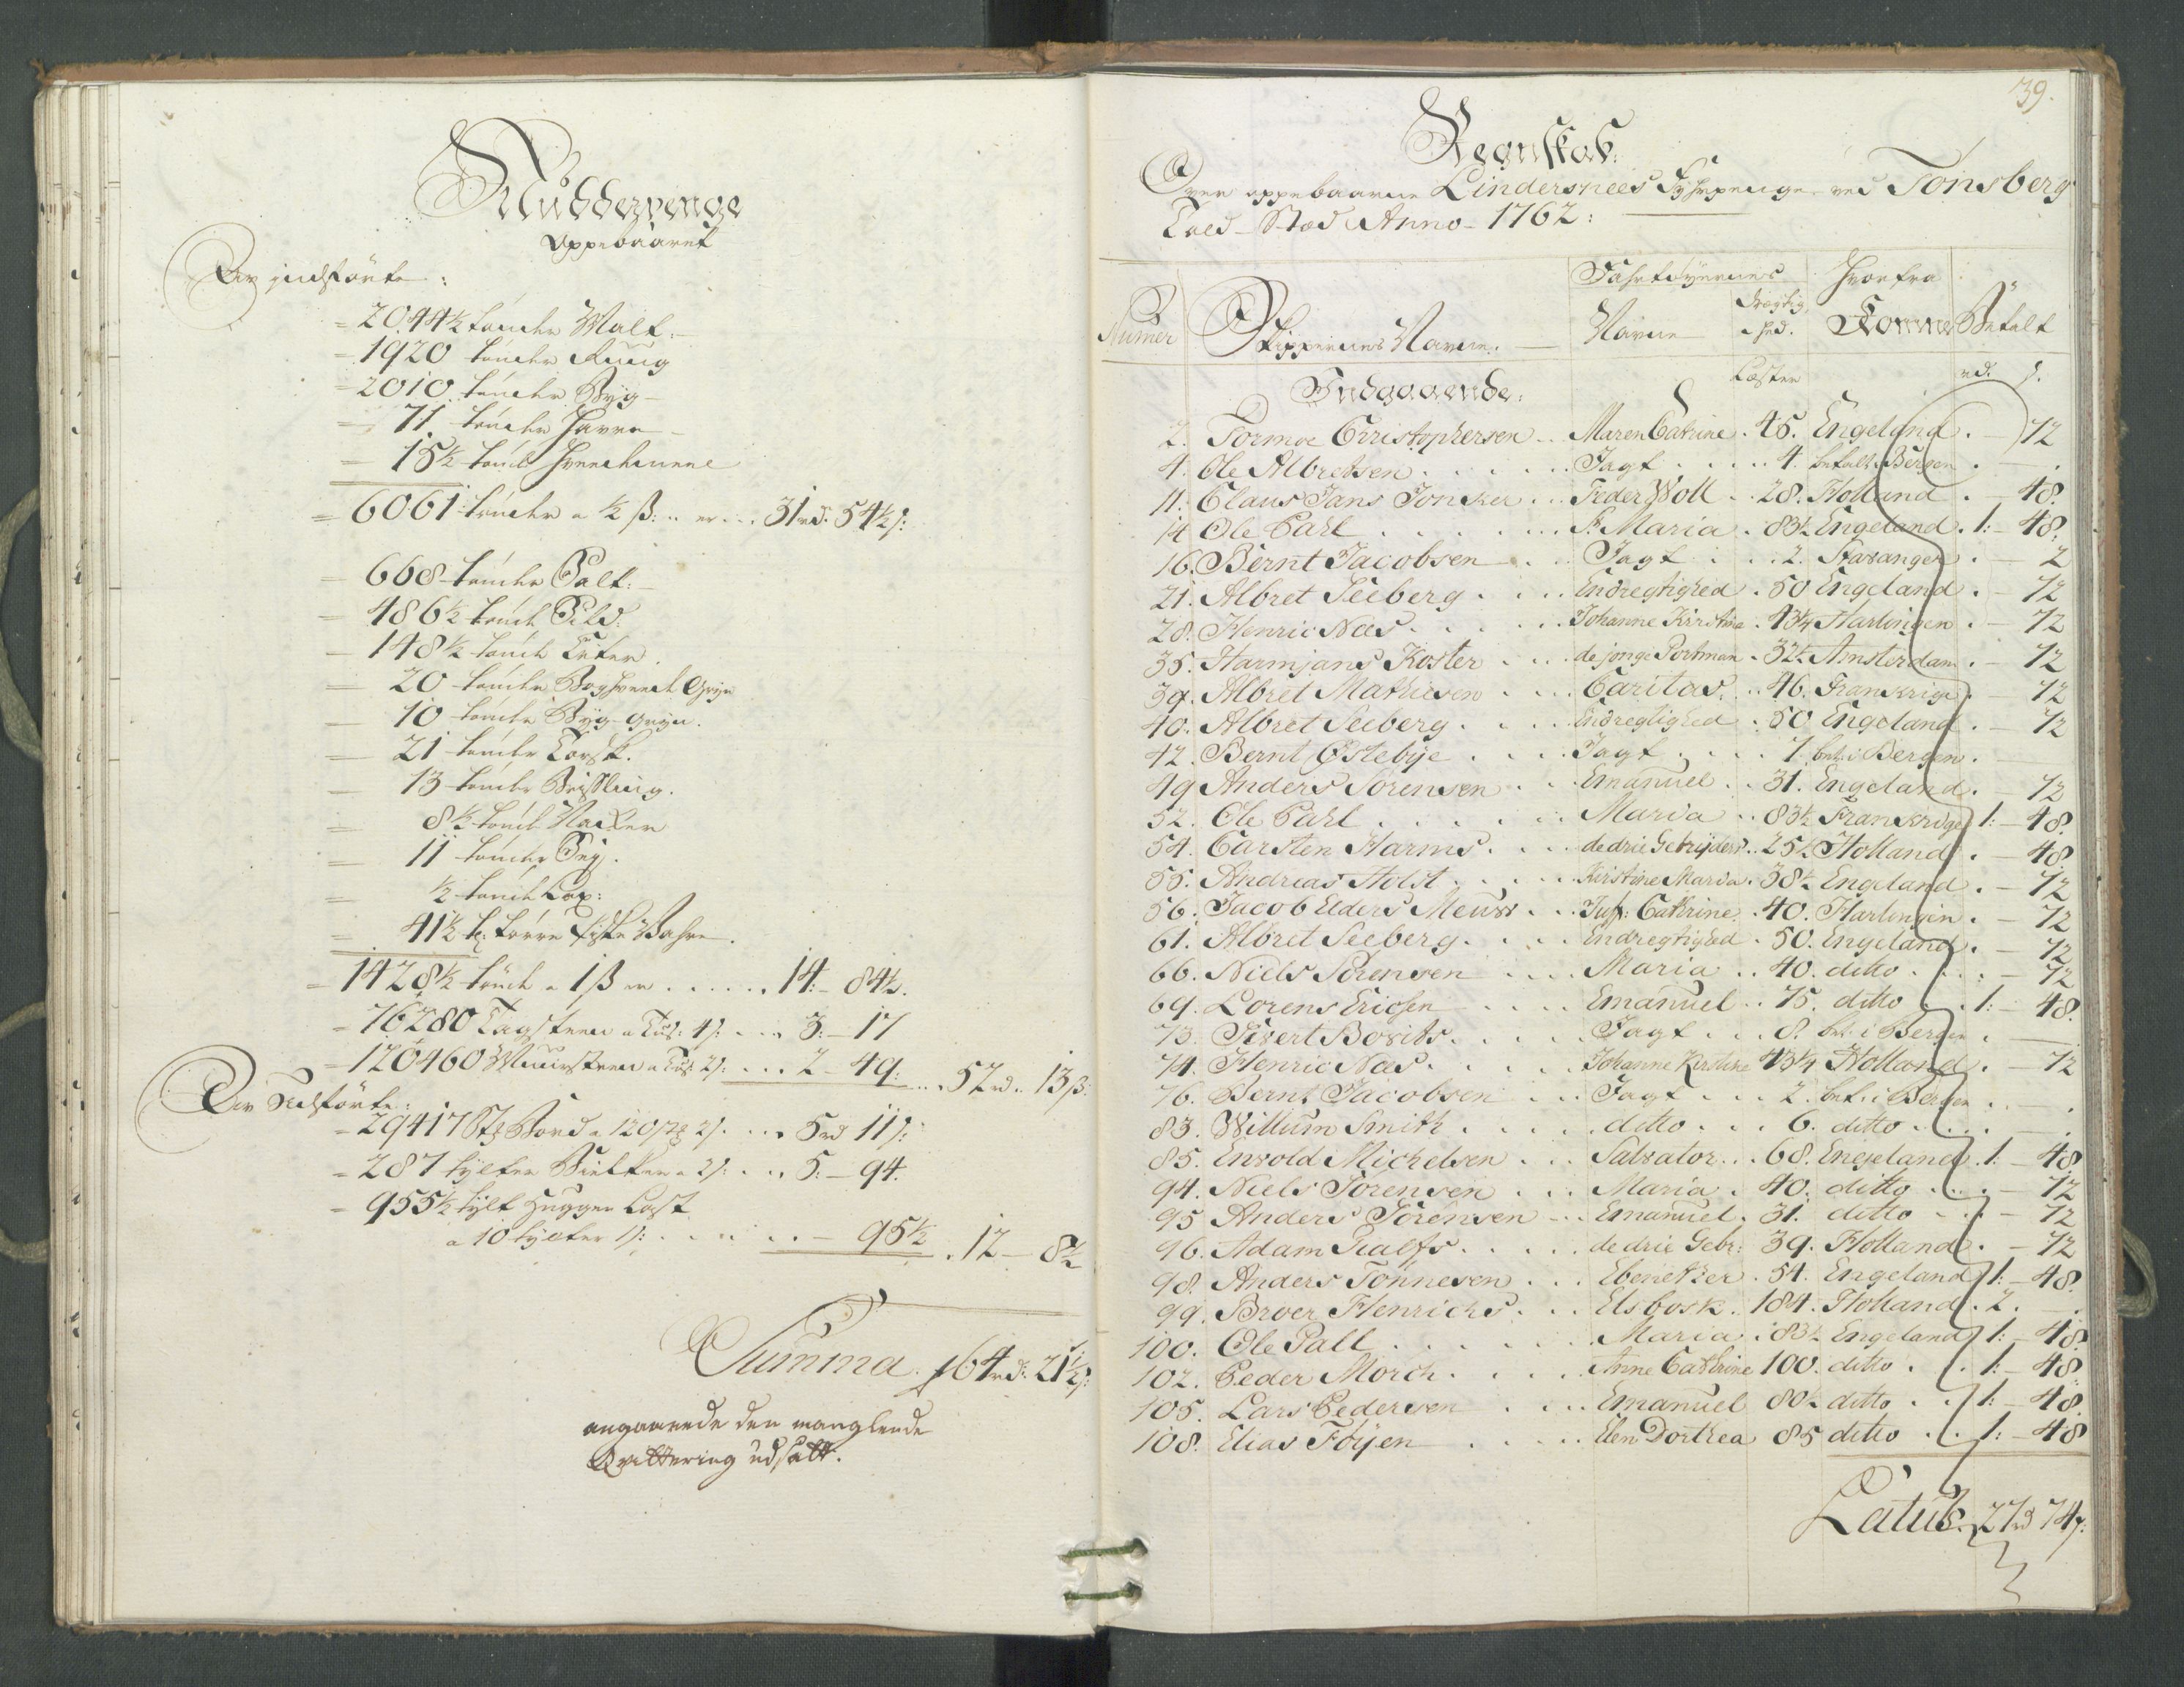 Mudderpenge
Oppebaaret
Av indförte:
= 2044½ tønder Malt.
= 1920 tønder Rug
= 2010 tønder Byg
= 71 tønder Havre
= 15½ tønd Hvedemeel
= 6061 tønder a ½ ß: .. er ... 31 rd. 54½ s:
= 668 tønder Salt.
= 486½ tønd Sild.
= 148½ tønd
= 20 tønder Boghvede Gryn
= 10 tønder Byg-gryn.
= 21 tønder Torsk.
= 13 tønder Brissling.
= 8½ tønd
= 11 tønder Sey.
= ½ tønd Lax:
= 41½ törre fiske Vahre.
= 1428½ tönd a 1 ß er ...... 14:- 84½.
= 76280 Tagsteen a Tus: 4 s: ... 3:- 17
= 120460 Muursteen a Tus 2 s: ... 2 - 49: ... 52 rd .. 13 ß:
Av Udförte:
= 29417 Stk Bord a 120 stk 2 s. ... 5 rd 11 s:
= 287 tylter Bielker a 2 s: ... 5:- 94.
= 955½ tylt Huggen Last
a 10 tylter 1 s: ...... - 95½ . 12 - 8½
Summa. 64 rd: 21½ s:
angaaende den manglende
Qvittering udsatt.
39.
Regnskab:
Over oppebaarne Lindersnees Fyhrpenge ved Tönsberg
Told-Stæd Anno 1762:
Numer Skippernes Navne. Fahrtöyernes Navne Drægtighed. Hvorfra Komne Betalt
Læster rd. s.
Indgaaende:
2. Tormoe Christophersen .. Maren Catrine . 45. Engeland . - 72
4. Ole Albretsen ..... Jagt .... 4. betalt i Bergen . - .
11. Claus Jans Joncker .. Feder Woll .. 28. Holland . - 48.
14 Ole Pahl ...... St. Maria . 83½ Engeland . 1:- 48.
16. Bernt Jacobsen ... Jagt ... 2. Stavanger . - 2
21. Albret Seeberg .... Endregtighed . 50 Engeland . - 72
28. Henric Næs ..... Johanne Kirstine . 43¼ Harlingen . - 72
35. Harmjans Koster ... de jonge Portman . 32½ Amsterdam . - 72
39. Albret Mathiesen ... Caritas .. 46. Frankrige . - 72
40. Albret Seeberg .... Endregtighed . 50 Engeland . - 72
42. Bernt Østebye .... Jagt ... 7. bet: i Bergen .
49 Anders Sørensen ... Emanuel .. 31. Engeland . - 72
52. Ole Pahl ...... Maria .. 83½ Frankrige 1:- 48.
54. Carsten Harms .... de drie Gebrijders .. 25½ Holland . - 48.
55. Andreas Holst .... Kirstine Maria . 38½ Engeland . - 72
56. Jacob Elders Meuss ... Juf: Cathrine . 40. Harlingen . - 72
61. Albret Seeberg .... Endregtighed . 50. Engeland . - 72
66. Niels Sørensen .... Maria .. 40. ditto ... - 72
69. Lorens Erichsen .... Emanuel .. 75. ditto . 1:- 48.
73. Sivert Bovits ..... Jagt ... 8. bet: i Bergen . -
74. Henric Næs ..... Johanne Kirstine 43¼ Holland . - 72
76. Bernt Jacobsen ... Jagt ... 2. bet: i Bergen . - .
83. Willum Smith .... ditto ... 6. ditto ... - .
85. Envold Michelsen ... Salvator ... 68. Engeland . 1. - 48
94. Niels Sörensen ... Maria . 40. ditto ... - 72
95 Anders Sörensen .. Emanuel . 31. ditto .. - 72
96. Adam Tialfs ..... de drie Gebr: 39. Holland . - 72
98. Anders Tönnesen ... Ebenetzer . 54. Engeland 1:- 48.
99. Broer Henrichs ... Elsbosk . 184. Holland . 2. - .
100. Ole Pall ...... Maria . 83½ Engeland 1:- 48.
102. Peder Morch .... Anne Cathrine 100. ditto . . 1:- 48.
105. Lars Pedersen ... Emanuel 80½ ditto .. 1:- 48.
108. Elias Föyen .... Elen Dorthea 85 ditto .. 1:- 48
Latus. 27 rd 74 s: